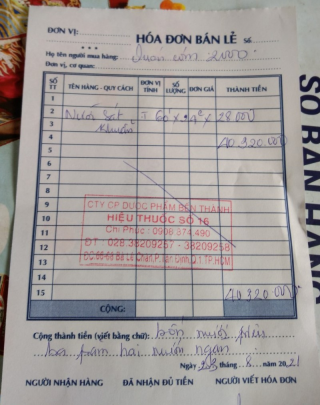 ĐƠN VỊ:
HÓA ĐƠN BÁN LẺ Số
Họ tên người mua hàng: Quán cơm 2000
Đơn vị, cơ quan:
SỐ TT TÊN HÀNG - QUY CÁCH ĐƠN VỊ TÍNH SỐ LƯỢNG ĐƠN GIÁ THÀNH TIỀN
1
2 Nước Sát 28000
3 Khuẩn 40.320.000
4
5
6
7
8
9
CTY CP DƯỢC PHẨM BẾN THÀNH
10
HIỆU THUỐC SỐ 16
11
Chị Phúc: 0908 374 490
12
ĐT: 028.38209257 - 38209258
13
14
15 40.320.000
CỘNG:
Cộng thành tiền (viết bằng chữ): bốn mươi triệu
ba trăm hai mươi ngàn
Ngày tháng 8 năm 2021
NGƯỜI NHẬN HÀNG ĐÃ NHẬN ĐỦ TIỀN NGƯỜI VIẾT HÓA ĐƠN
SỔ BÁN HÀNG